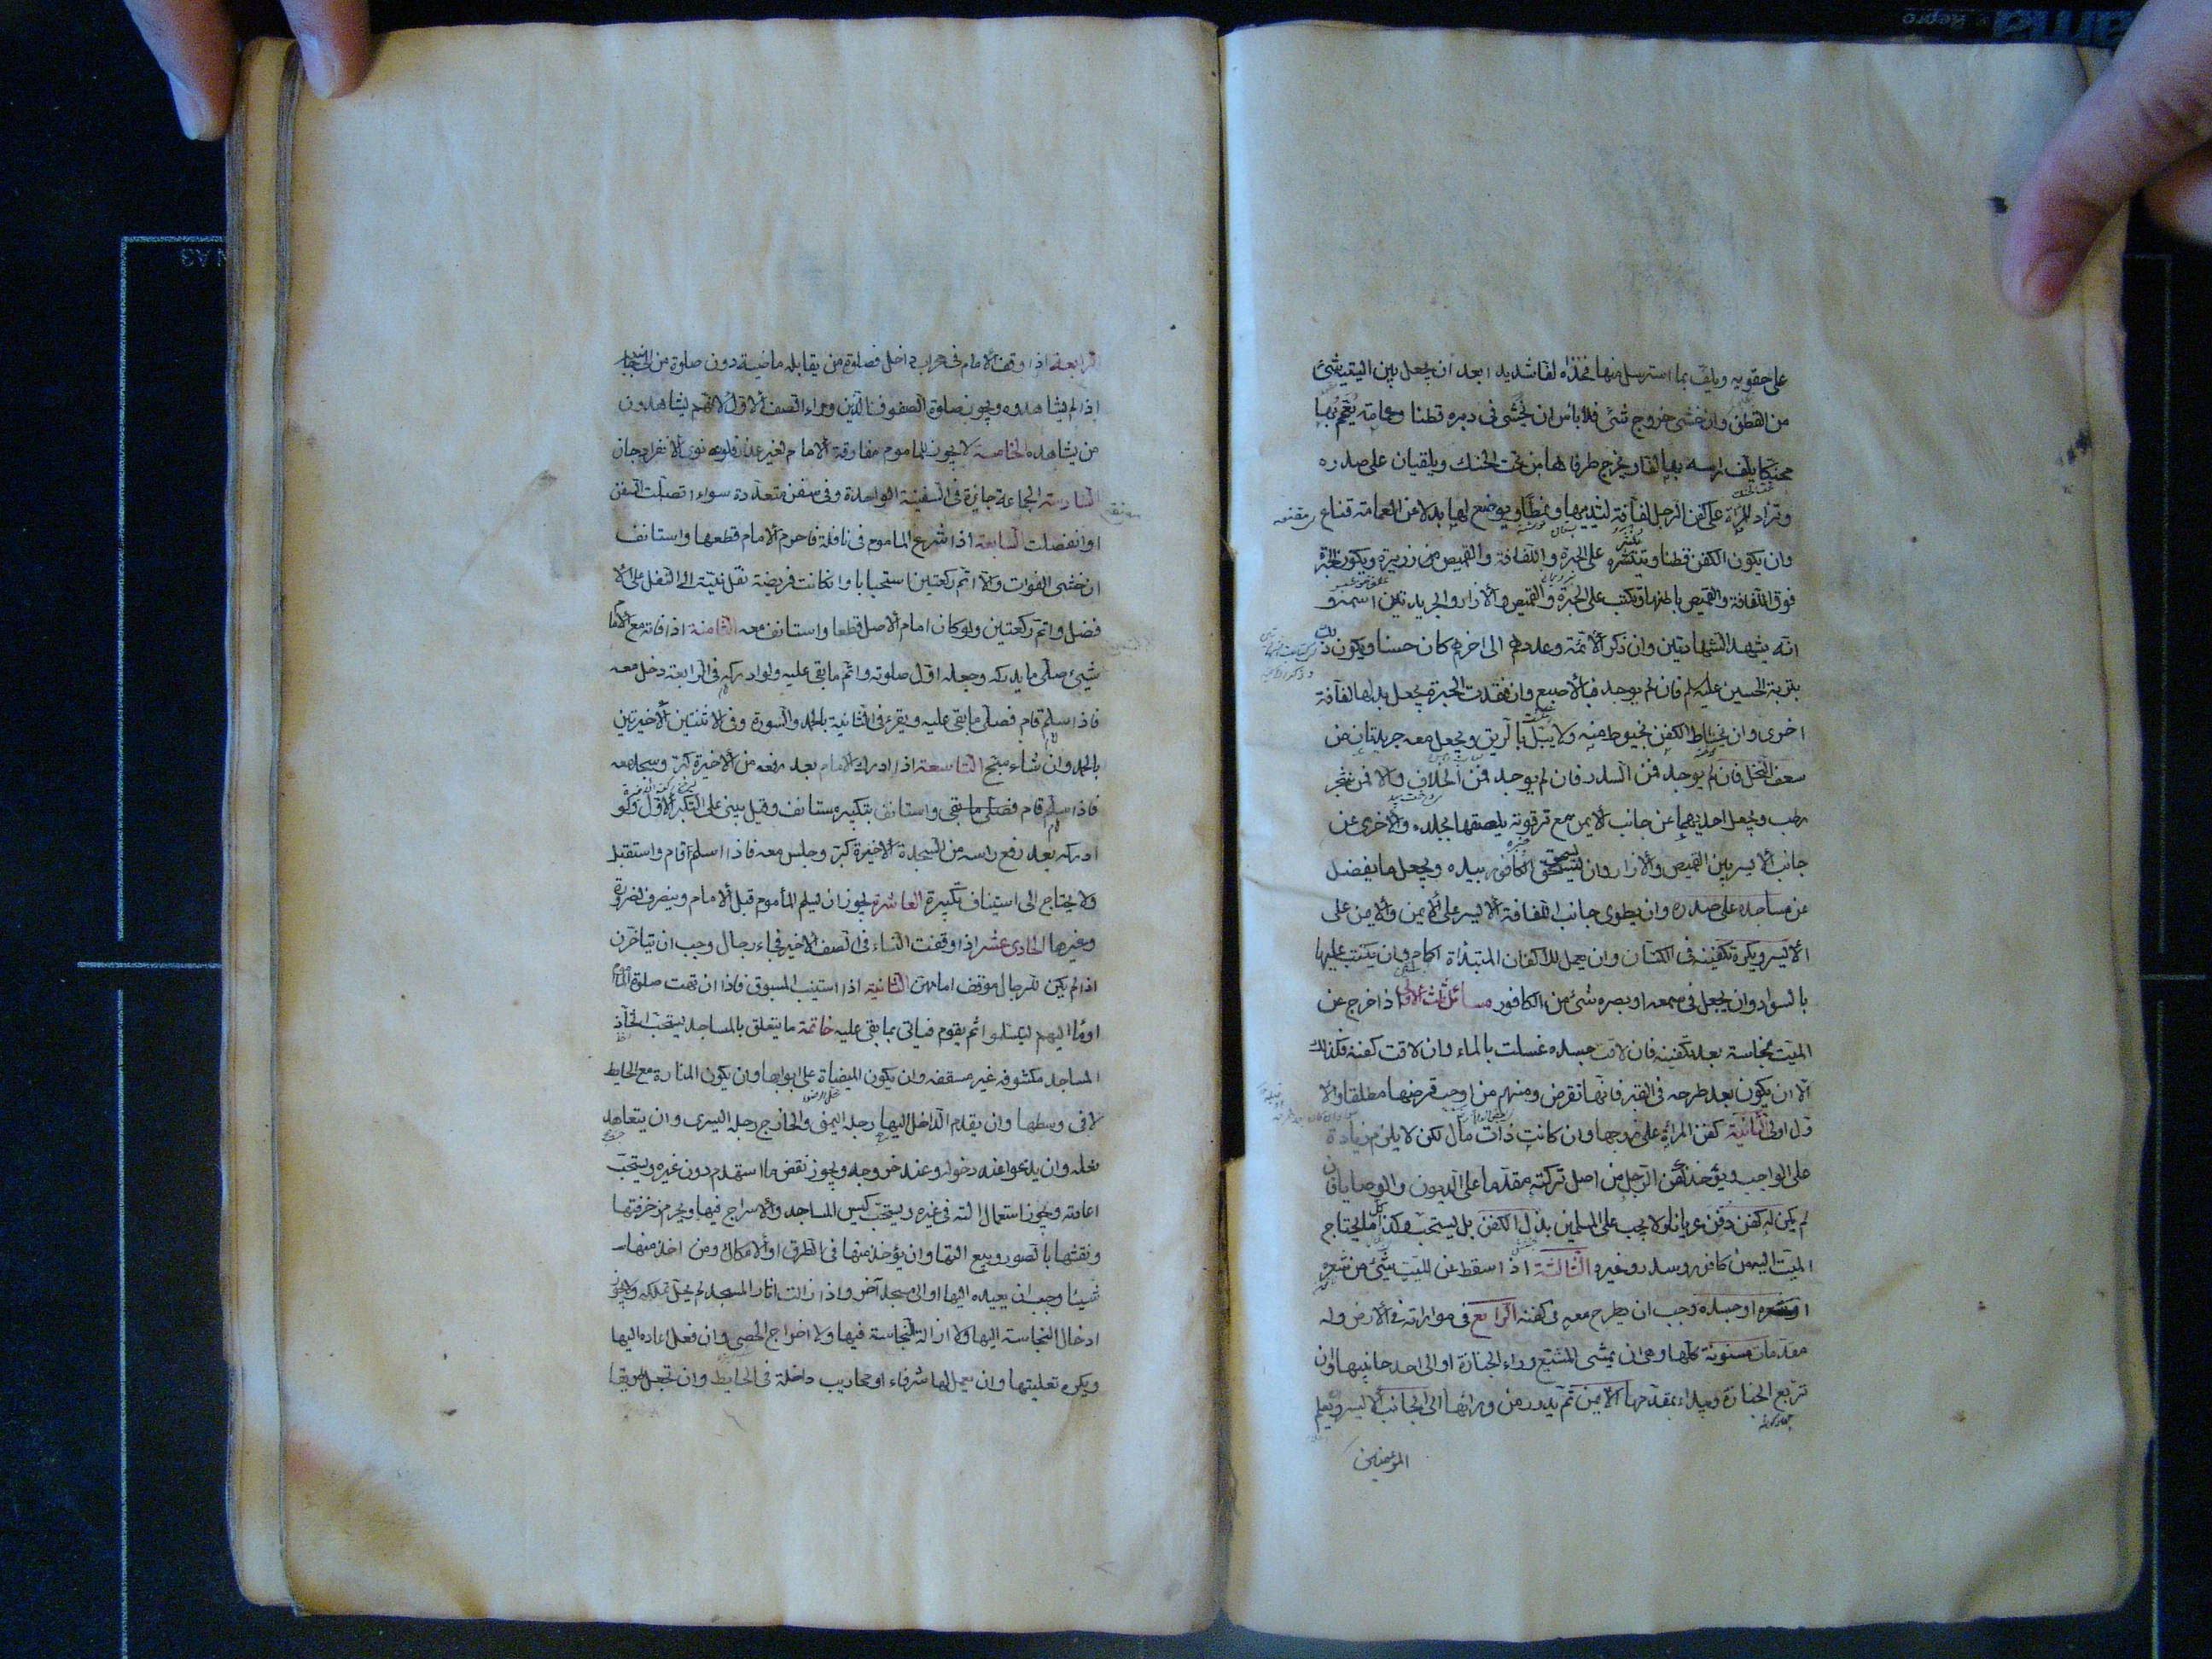 على حقويه ويلف بما استرسل منها فخذاه لفا شديدا بعد ان يجعل بين اليتيه شئ
من القطن وان خشى خروج شئ فلا بأس ان يحشى فى دبره قطنا وعمامة يعمم بها
محنكا يلف راسه بها لفا ويخرج طرفاها من تحت الحنك ويلقيان على صدره
وتزاد المراة على كفن الرجل لفافة لثدييها ونمطا ويوضع لها بدلا عن العمامة قناع
وان يكون الكفن قطنا وينثر على الحبرة واللفافة والقميص من ذريرة ويكون الحبرة
فوق اللفافة والقميص باطنها ويكتب على الحبرة والقميص والازار والجريدتين اسمه و
انه يشهد الشهادتين وان ذكر الائمة وعددهم الى اخرهم كان حسنا ويكون ذلك
بتربة الحسين عليه السلم فان لم يوجد فبالاصبع وان فقدت الحبرة يجعل بدلها لفافة
اخرى وان يخاط الكفن بخيوط منه ولا يبل بالريق ويجعل معه جريدتان من
سعف النخل فان لم يوجد فمن السدر فان لم يوجد فمن الخلاف والا فمن شجر
رطب ويجعل احديهما من جانب الايمن مع ترقوته يلصقها بجلده والاخرى من
جانب الايسر بين القميص والازار وان يسحق الكافور بيده ويجعل ما يفضل
عن مساجده على صدره وان يطوى جانب اللفافة الايسر على الايمن والايمن على
الايسر ويكره تكفينه فى الكتان وان يعمل للاكفان المبتداة اكمام وان يكتب عليها
بالسواد وان يجعل فى سمعه او بصره شئ من الكافور مسائل ثلث الاولى اذا خرج من
الميت نجاسة بعد تكفينه فان لاقت جسده غسلت بالماء وان لاقت كفنه فكذلك
الا ان يكون بعد طرحه فى القبر فانها تقرض ومنهم من اوجب قرضها مطلقا والا
ول اولى الثانية كفن المراة على زوجها وان كانت ذات مال لكن لا يلزم زيادة
على الواجب ويؤخذ كفن الرجل من اصل تركته مقدما على الديون والوصايا فان
لم يكن له كفن دفن عريانا ولا يجب على المسلمين بذل الكفن بل يستحب وكذا ما يحتاج
الميت اليه من كافور وسدر وغيره الثالثة اذا سقط من الميت شئ من شعره
او جسده وجب ان يطرح معه فى كفنه الرابع فى مواراته فى الارض وله
مقدمات مسنونة كلها وهى ان يمشى المشيع وراء الجنازة او الى احد جانبيها وان
تربع الجنازة ويبداء بمقدمها الايمن ثم يدور من ورائها الى الجانب الايسر ويعلم
المؤمنين
الرابعة اذا وقف الامام فى محراب داخل فصلوة من يقابله ماضية دون صلوة من الى جانبيه
اذا لم يشاهدوه ويجوز صلوة الصفوف الذين وراء الصف الاول لانهم يشاهدون
من يشاهده الخامسة لا يجوز للماموم مفارقة الامام لغير عذر فلو نوى الانفراد جاز
السادسة الجماعة جائزة فى السفينة الواحدة وفى سفن متعددة سواء اتصلت السفن
او انفصلت السابعة اذا شرع الماموم فى نافلة فاحرم الامام قطعها واستانف
ان خشى الفوات والا اتم ركعتين استحبابا وان كانت فريضة نقل نيته الى النفل على الا
فضل واتم ركعتين ولو كان امام الاصل قطعها واستانف معه الثامنة اذا فاته مع الامام
شئ صلى ما يدركه وجعله اول صلوته واتم ما بقى عليه ولو ادركه فى الرابعة دخل معه
فاذا سلم قام فصلى ما بقى عليه ويقرء فى الثانية بالحمد والسورة وفى الاثنتين الاخيرتين
بالحمد وان شاء سبح التاسعة اذا ادرك الامام بعد رفعه من الاخيرة كبر وسجد معه
فاذا سلم قام فصلى ما بقى واستانف بتكبير مستانف وقيل يبنى على التكبير الاول ولو
ادركه بعد رفع راسه من السجدة الاخيرة كبر وجلس معه فاذا سلم قام واستقبل
ولا يحتاج الى استيناف تكبيرة العاشرة يجوز ان يسلم المأموم قبل الامام وينصرف لضرورة
وغيرها الحادى عشر اذا وقفت النساء فى الصف الاخير فجاء رجال وجب ان يتاخرن
اذا لم يكن للرجال موقف امامهن الثانية اذا استنيب المسبوق فاذا انتهت صلوة الماموم
اومأ اليهم ليسلموا ثم يقوم فياتى بما بقى عليه خاتمة ما يتعلق بالمساجد يستحب اتخاذ
المساجد مكشوفة غير مسقفة وان يكون الميضاة على ابوابها وان يكون المنارة مع الحايط
لا فى وسطها وان يقدم الداخل اليها رجله اليمنى والخارج رجله اليسرى وان يتعاهد
نعله وان يدعو عند دخوله وعند خروجه ويجوز نقض ما استهدم دون غيره ويستحب
اعادته ويجوز استعمال الته فى غيره ويستحب كنس المساجد والاسراج فيها ويحرم زخرفتها
ونقشها بالصور وبيع التها وان يؤخذ منها فى الطرق او الاملاك ومن اخذ منها
شيئا وجب ان يعيده اليها او الى مسجد آخر واذا زالت اثار المسجد لم يحل تملكه ولا يجوز
ادخال النجاسة اليها ولا ازالة النجاسة فيها ولا اخراج الحصى وان فعل اعاده اليها
ويكره تعليتها وان يعمل لها شرفاء او محاريب داخلة فى الحايط وان تجعل طريقا